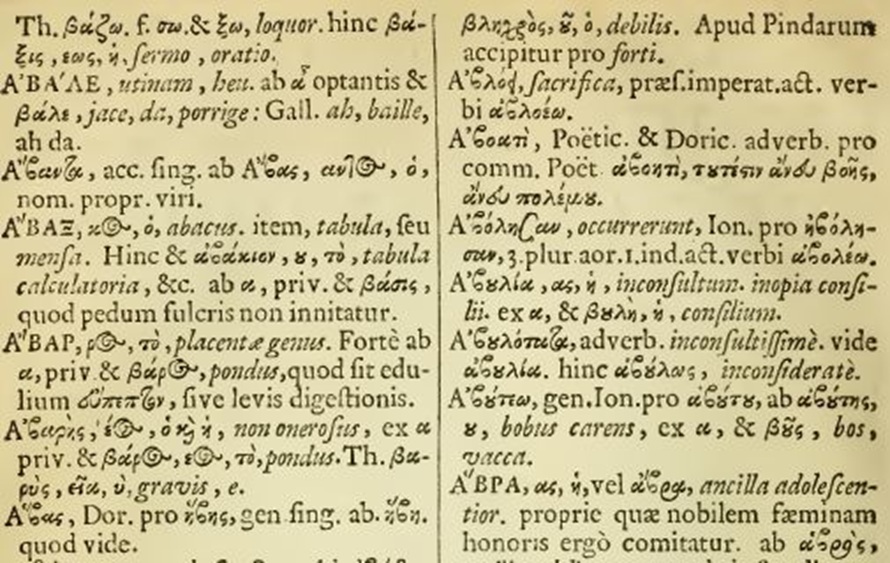 Th. βάζω. f. σω. & ξω, loquor. hinc βά-
ξις, εως, ἡ, sermo, oratio.
Α᾿ΒΑ΄ΛΕ, utinam, heu. ab ἀ optantis &
βάλε, jace, da, porrige: Gall. ah, baille,
ah da.
Α῎βαντα, acc. sing. ab Α῎βας, αντος, ὁ,
nom. propr. viri.
Α῎ΒΑΞ, κος, ὁ, abacus. item, tabula, seu
mensa. Hinc & ἀβάκιον, ου, τὸ, tabula
calculatoria, &c. ab α, priv. & βάσις,
quod pedum fulcris non innitatur.
Α῎ΒΑΡ, ρος, τὸ, placentæ genus. Fortè ab
α, priv. & βάρος, pondus, quod sit edu-
lium εὔπεπτον, sive levis digestionis.
Α᾿βαρὴς, έος, ὁ καὶ ἡ, non onerosus, ex α
priv. & βάρος, εος, τὸ, pondus. Th. βα-
ρὺς, εῖα, ὺ, gravis, e.
Α῎βας, Dor. pro ἥβης, gen sing. ab. ἥβη.
quod vide.
βληχρὸς, οῦ, ὁ, debilis. Apud Pindarum
accipitur pro forti.
sacrifica, præs. imperat. act. ver-
bi ἀβλοέω.
Α᾿βοατὶ, Poëtic. & Doric. adverb. pro
comm. Poët ἀβοητὶ, τουτέστιν ἄνευ βοῆς,
ἄνευ πολέμου.
Α᾿βόλησαν, occurrerunt, Ion. pro ἠβόλη-
σαν, 3. plur. aor. 1. ind. act. verbi ἀβολέω.
Α᾿βουλία, ας, ἡ, inconsultum. inopia consi-
lii. ex α, & βουλὴ, ἡ, consilium.
Α᾿βουλότατα, adverb. inconsultissimè. vide
ἀβουλία. hinc ἀβούλως, inconsideratè.
Α᾿βούτεω, gen. Ion. pro ἀβούτου, ab ἀβούτης,
ου, bobus carens, ex α, & βοῦς, bos,
vacca.
Α῞ΒΡΑ, ας, ἡ, vel ἅβρα, ancilla adolescen-
tior. propriè quæ nobilem fæminam
honoris ergò comitatur. ab ἁβρὸς,